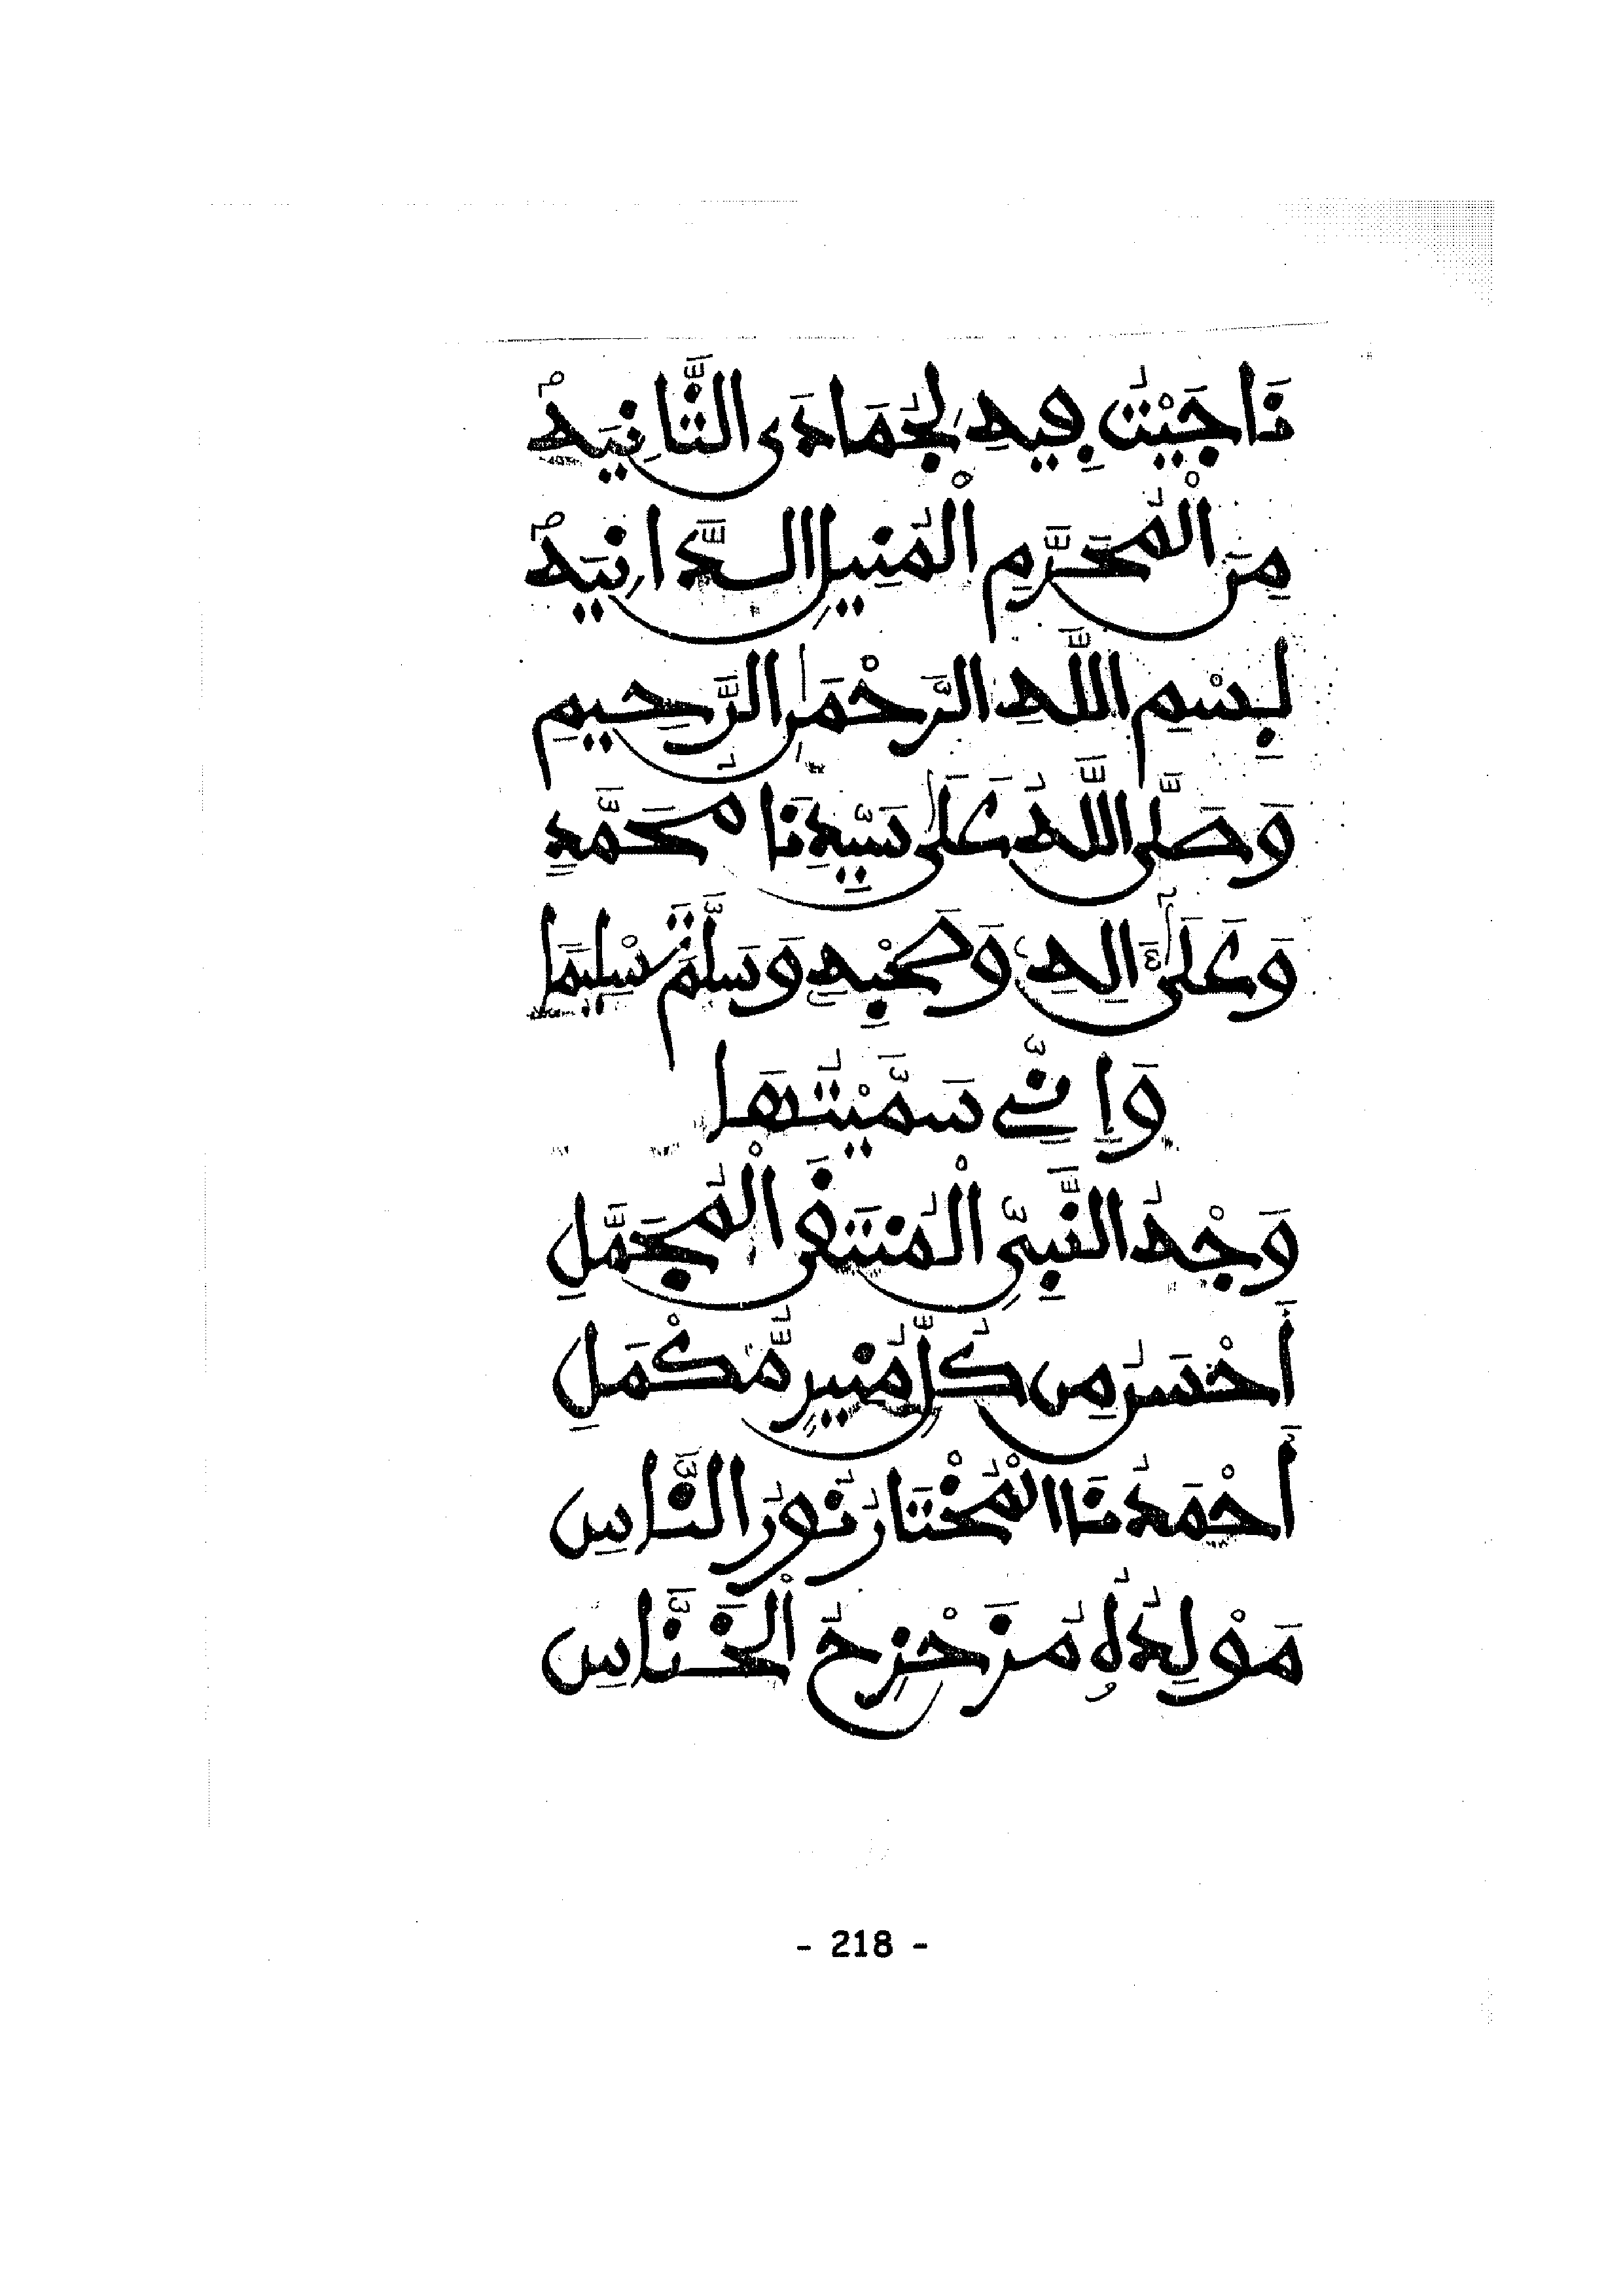 نَاجَيْتُ فِيهِ لِجُمَادَى الثَّانِيَهْ
مِنَ الْمُحَرَّمِ الْمُنِيلِ الدَّانِيَهْ
بِسْمِ اللَّهِ الرَّحْمَنِ الرَّحِيمِ
وَصَلَّى اللَّهُ عَلَى سَيِّدِنَا مُحَمَّدٍ
وَعَلَى آلِهِ وَصَحْبِهِ وَسَلَّمَ تَسْلِيمًا
وَإِنِّي سَمَّيْتُهَا
وَجْهُ النَّبِيِّ الْمُنْتَقَى الْمُجَمَّلِ
أَحْسَنُ مِن كُلِّ مُنِيرٍ مُّكْمَلِ
أَحْمَدُنَا الْمُخْتَارُ نُورُ النَّاسِ
مَوْلِدُهُ مُزَحْزِحُ الْخَنَّاسِ
- 218 -